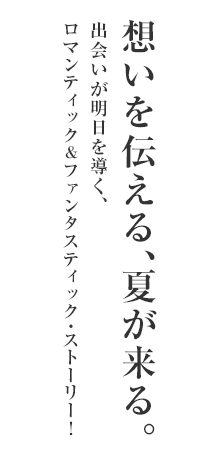 想いを伝える、夏が来る。
出会いが明日を導く、
ロマンティック&ファンタスティック・ストーリー!